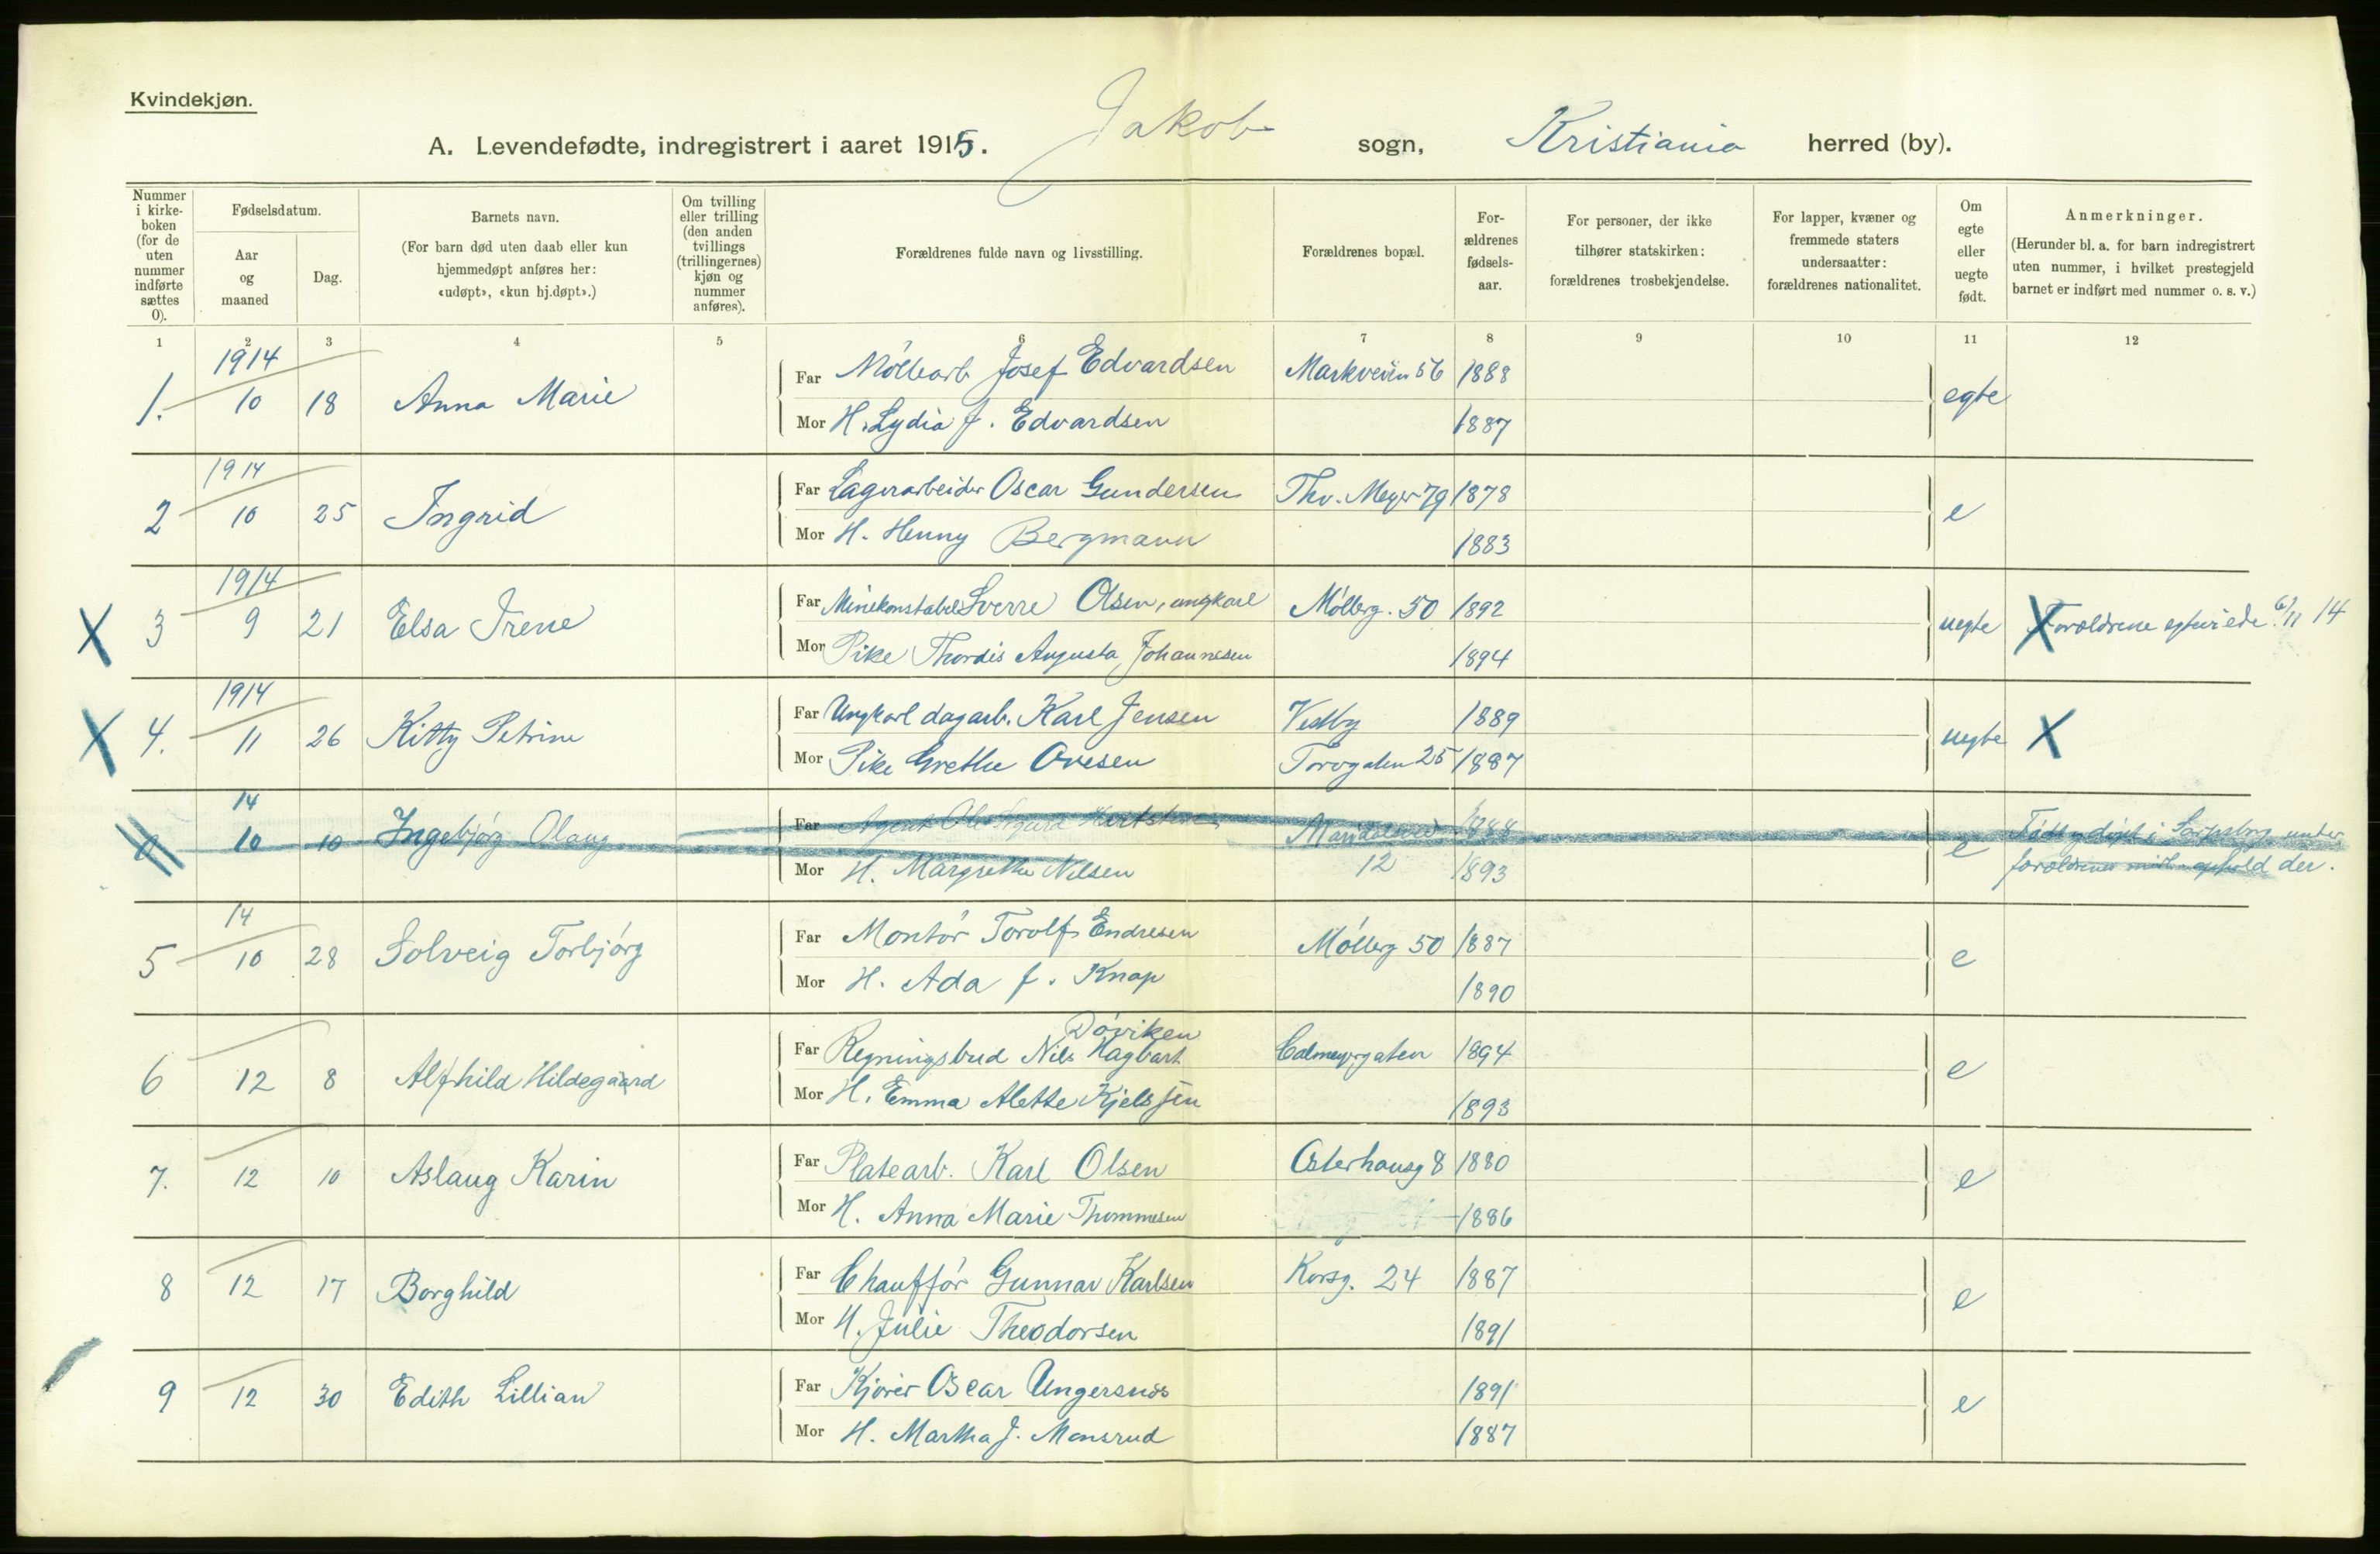 Kvindekjøn.
A. Levendefødte, indregistrert i aaret 1915. Jakob sogn, Kristiania herred (by).
Nummer i kirke-boken (for de uten nummer indførte sættes 0).
Fødselsdatum.
Aar og maaned
Dag.
Barnets navn.
(For barn død uten daab eller kun hjemmedøpt anføres her: «udøpt», «kun hj.døpt».)
Om tvilling eller trilling (den anden tvillings (trillingernes) kjøn og nummer anføres).
Forældrenes fulde navn og livsstilling.
Forældrenes bopæl.
For-ældrenes fødsels-aar.
For personer, der ikke tilhører statskirken: forældrenes trosbekjendelse.
For lapper, kvæner og fremmede staters undersaatter: forældrenes nationalitet.
Om egte eller uegte født.
Anmerkninger.
(Herunder bl. a. for barn indregistrert uten nummer, i hvilket prestegjeld barnet er indført med nummer o. s. v.)
1 2 3 4 5 6 7 8 9 10 11 12
1914
1. 10 18 Anna Marie Far Møllearb Josef Edvardsen Markveien 56 1888 egte
Mor H. Lydia J. Edvardsen 1887
1914
2 10 25 Ingrid Far Lagerarbeider Oscar Gundersen Thv. Meyer 79 1878 e
Mor H. Henny Bergmann 1883
1914
X 3 9 21 Elsa Irene Far Minekonstabel Sverre Olsen, ungkarl Møllerg. 50 1892 uegte X Forældrene egteviede 6/11 14
Mor Pike Thordis Augusta Johannesen 1894
1914
X 4. 11 26 Kitty Petrine Far Ungkarl dagarb. Karl Jensen Vestby 1889 uegte X
Mor Pike Grethe Ovesen Torvgaten 25 1887
14
0 10 10 Ingebjørg Olaug Far Agent Ole Sigurd 1888 e Født og døpt i Sarpsborg under
Mor H. Margrethe Nilsen 12 1893 forældrenes ophold der.
14
5 10 28 Solveig Torbjørg Far Montør Torolf Endresen Møllerg 50 1887 e
Mor H. Ada J. Knap 1890
Døviken
6 12 8 Alfhild Hildegaard Far Regningsbud Nils Hagbart Calmeyergaten 1894 e
Mor H. Emma Alette Kjelsjen 1893
7. 12 10 Aslaug Karin Far Platearb. Karl Olsen Osterhausg 8 1880 e
Mor H. Anna Marie Thommesen 1886
8 12 17 Borghild Far Chauffør Gunnar Karlsen Korsg. 24 1887 e
Mor H. Julie Theodorsen 1891
9 12 30 Edith Lillian Far Kjører Oscar Ungersnes 1891 e
Mor H. Martha J. Monsrud 1887